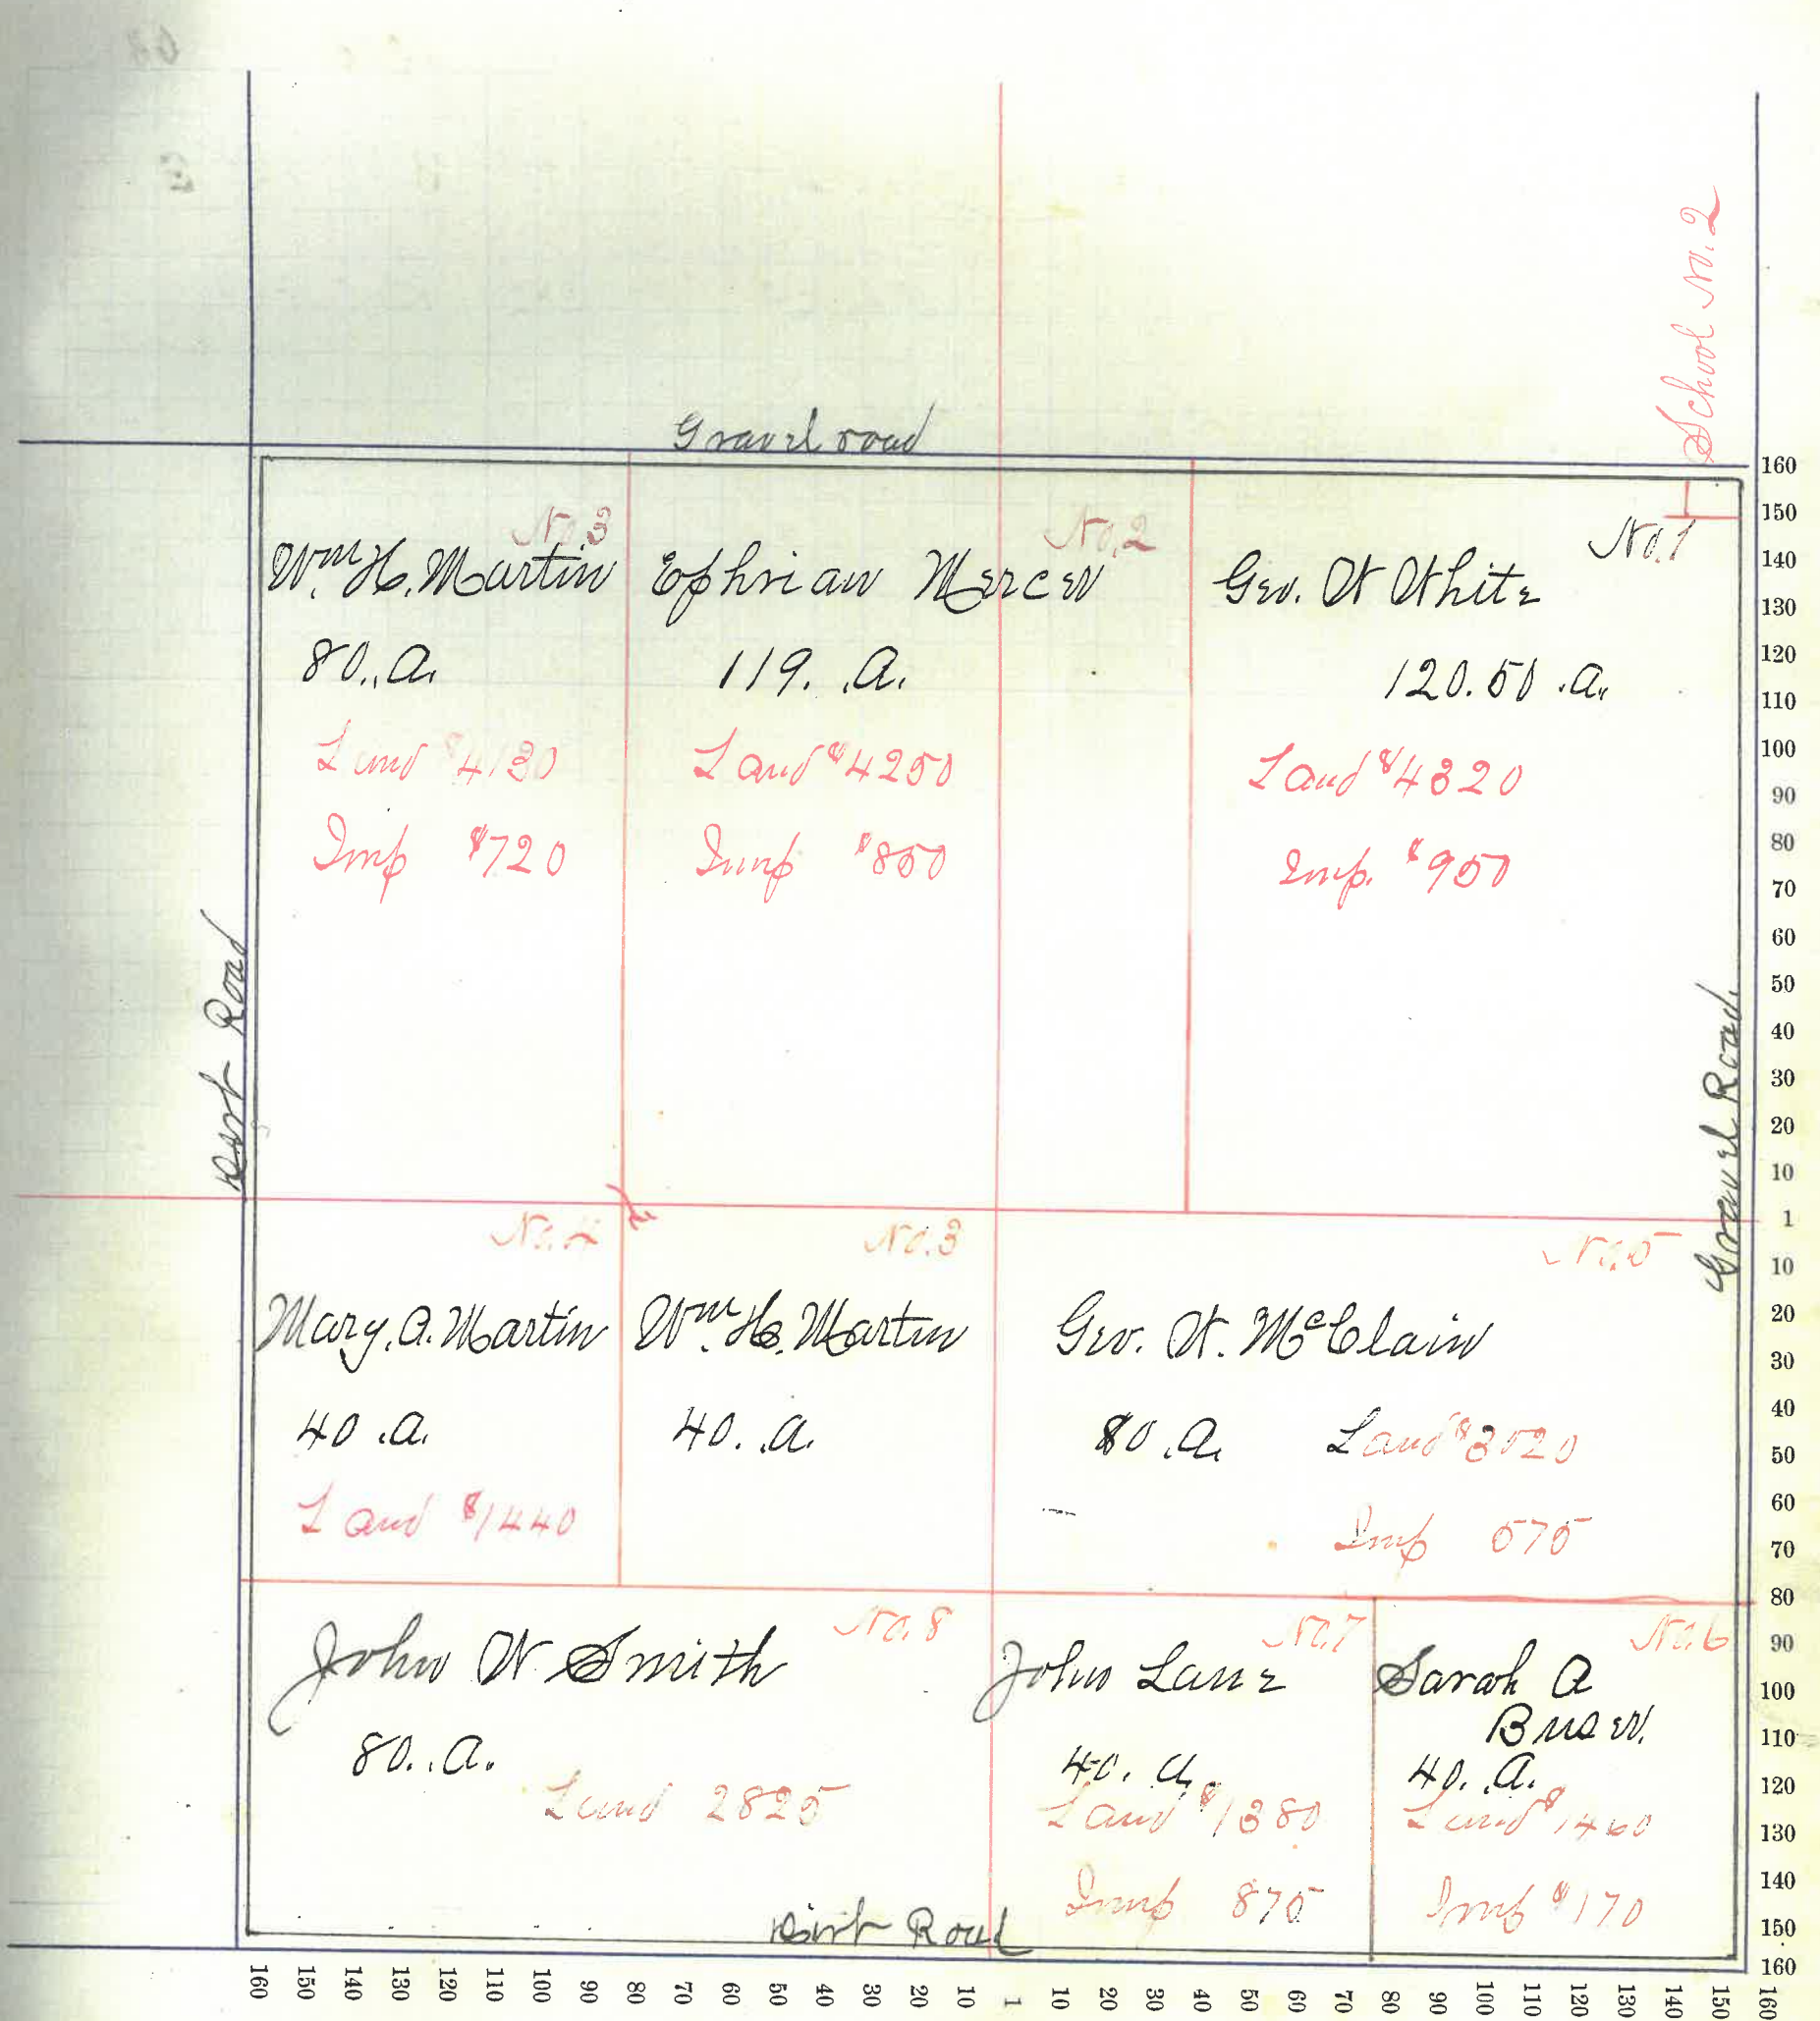 School No. 2
Gravel road
No. 3
Wm. H. Martin
80. A.
Land $4130
Imp $720
No. 2
Ephriam Mercer
119. A.
Land $4250
Imp $850
No. 1
Geo. W White
120.50 .A.
Land $4320
Imp. $950
Dirt Road
Gravel Road
No. 4
Mary. A. Martin
40 .A.
Land $1440
No. 3
Wm. H. Martin
40. .A.
No. 5
Geo. W. McClain
80 .A.
Land $3520
Imp 575
No. 8
John W. Smith
80. .A.
Land 2825
No. 7
John Lane
40. A.
Land $1380
Imp 875
No. 6
Sarah A
40. .A.
Land $1460
Imp $170
Dirt Road
160
150
140
130
120
110
100
90
80
70
60
50
40
30
20
10
1
10
20
30
40
50
60
70
80
90
100
110
120
130
140
150
160
160 150 140 130 120 110 100 90 80 70 60 50 40 30 20 10 1 10 20 30 40 50 60 70 80 90 100 110 120 130 140 150 160